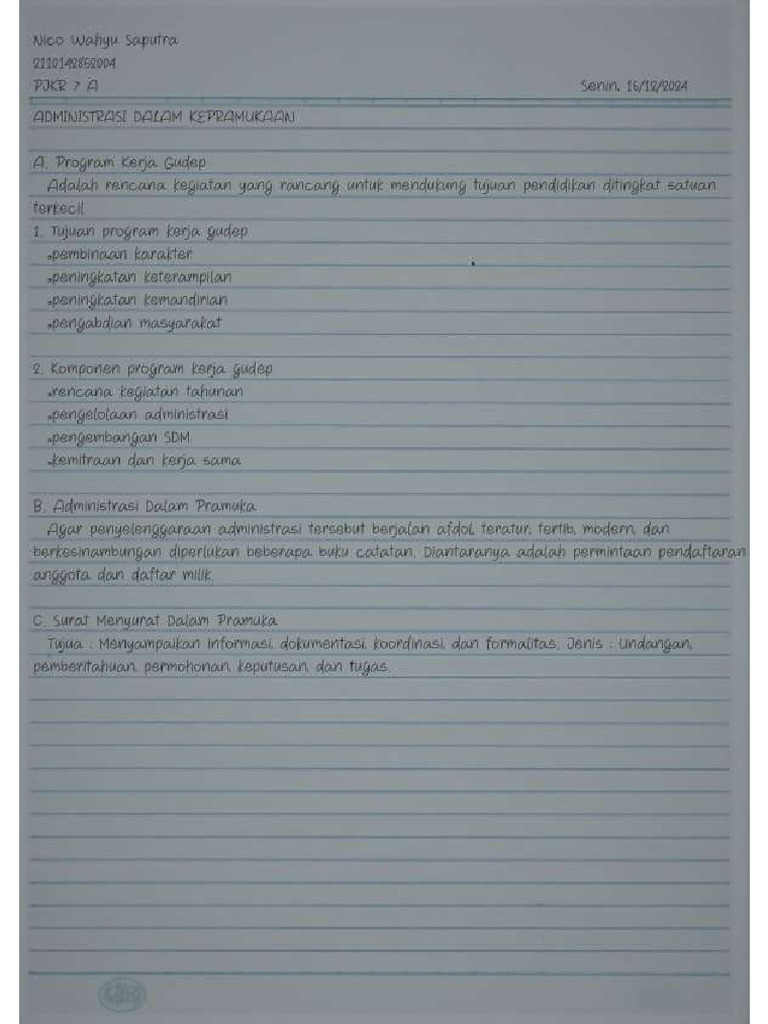 Nico Wahyu Saputra
2110142852004
PJKR 7 A
Senin, 16/12/2024
ADMINISTRASI DALAM KEPRAMUKAAN
A. Program Kerja Gudep
Adalah rencana kegiatan yang rancang untuk mendukung tujuan pendidikan ditingkat satuan
terkecil
1. Tujuan program kerja gudep
•pembinaan karakter
•peningkatan keterampilan
•peningkatan kemandirian
•pengabdian masyarakat
2. Komponen program kerja gudep
•rencana kegiatan tahunan
•pengelolaan administrasi
•pengembangan SDM
•kemitraan dan kerja sama
B. Administrasi Dalam Pramuka
Agar penyelenggaraan administrasi tersebut berjalan afdol, teratur, tertib, modern, dan
berkesinambungan diperlukan beberapa buku catatan. Diantaranya adalah permintaan pendaftaran
anggota dan daftar milik.
C. Surat Menyurat Dalam Pramuka
Tujua : Menyampaikan informasi, dokumentasi, koordinasi, dan formalitas. Jenis : Undangan,
pemberitahuan, permohonan, keputusan, dan tugas.